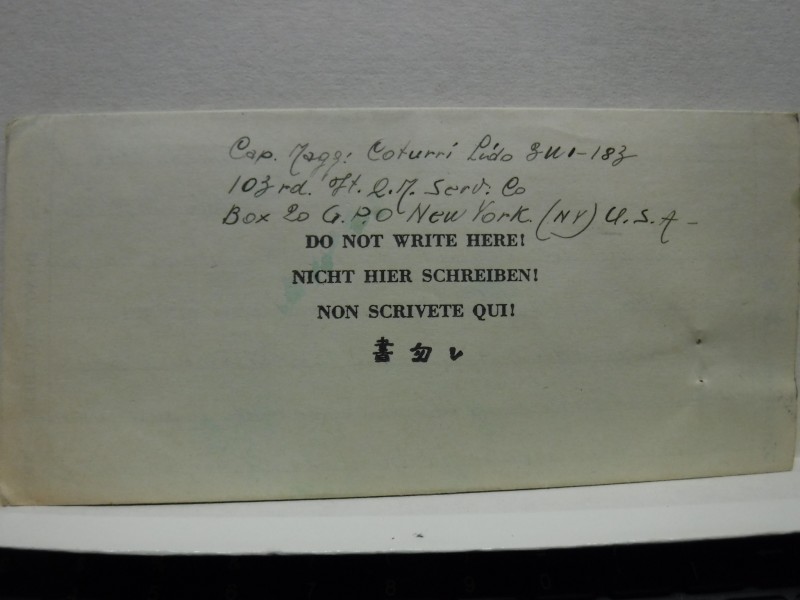 Cap. Magg: Coturri Lido 3WI-183
103rd. It. Q.M. Serv. Co
Box 20 G.P.O New York (NY) U.S.A-
DO NOT WRITE HERE!
NICHT HIER SCHREIBEN!
NON SCRIVETE QUI!
書勿レ